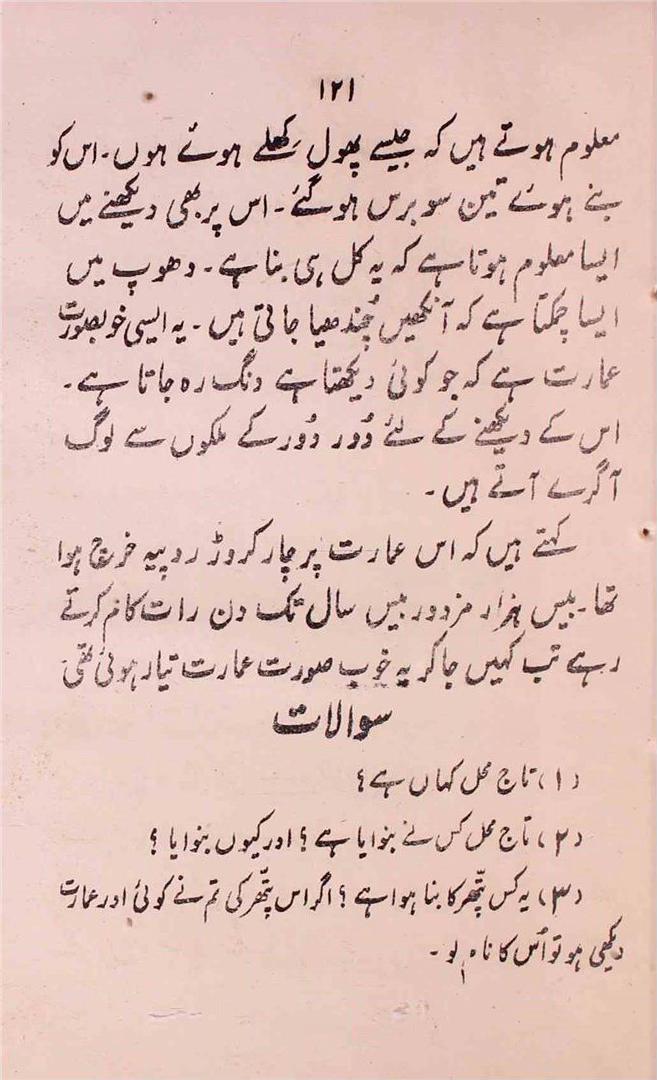 ۱۲۱
معلوم ہوتے ہیں کہ جیسے پھول کِھلے ہوئے ہوں۔ اس کو
بنے ہوئے تین سو برس ہو گئے۔ اس پر بھی دیکھنے میں
ایسا معلوم ہوتا ہے کہ یہ کل ہی بنا ہے۔ دھوپ میں
ایسا چمکتا ہے کہ آنکھیں چُندھیا جاتی ہیں۔ یہ ایسی خوبصورت
عمارت ہے کہ جو کوئی دیکھتا ہے دنگ رہ جاتا ہے۔
اس کے دیکھنے کے لئے دُور دُور کے ملکوں سے لوگ
آگرے آتے ہیں۔
کہتے ہیں کہ اس عمارت پر چار کروڑ روپیہ خرچ ہوا
تھا۔ بیس ہزار مزدور بیس سال تک دن رات کام کرتے
رہے تب کہیں جا کر یہ خوب صورت عمارت تیار ہوئی تھی۔
سوالات
(۱) تاج محل کہاں ہے؟
(۲) تاج محل کس نے بنوایا ہے؟ اور کیوں بنوایا؟
(۳) یہ کس پتّھر کا بنا ہوا ہے؟ اگر اس پتّھر کی تم نے کوئی اور عمارت
دیکھی ہو تو اُس کا نام لو۔